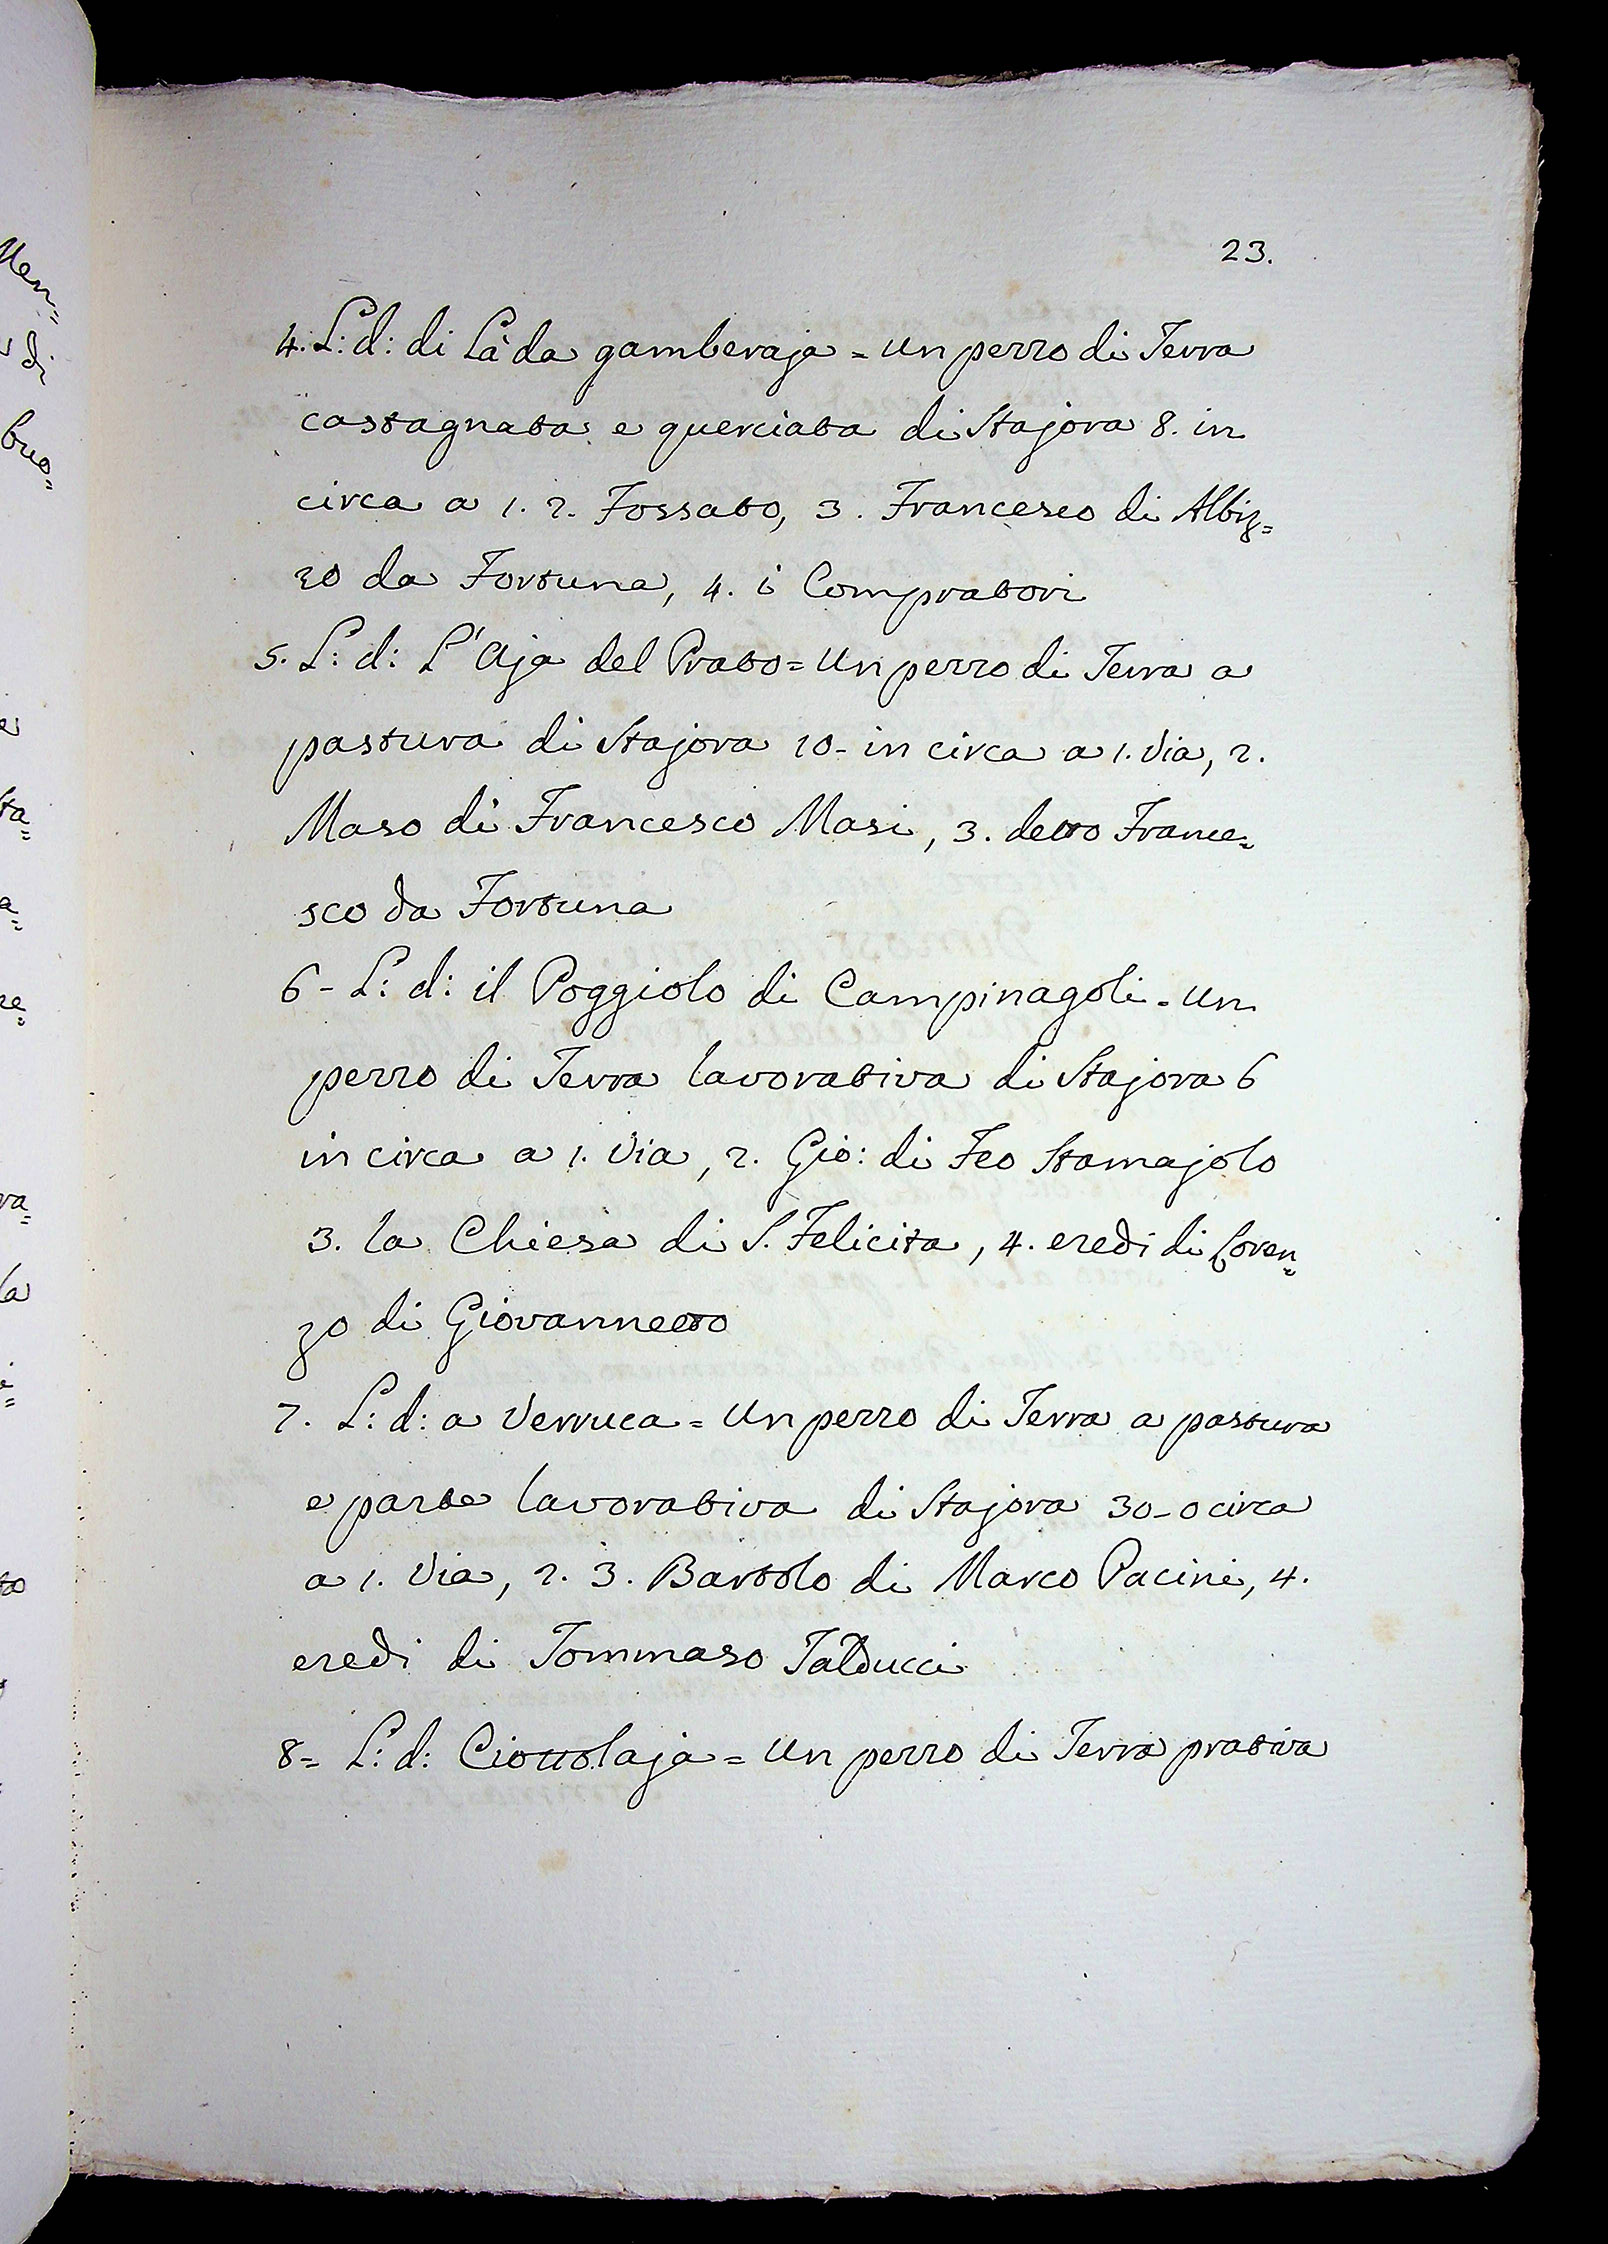 23.
4. L: d: di Là da gamberaja = un pezzo di Terra
castagnata e querciata di Stajora 8. in
circa a 1. 2. Fossato, 3. Francesco di Albiz=
zo da Fortuna, 4. i Compratori
5. L: d: L'Aja del Prato = Un pezzo di Terra a
pastura di Stajora 10- in circa a 1. Via, 2.
Maso di Francesco Masi, 3. detto France=
sco da Fortuna
6- L: d: il Poggiolo di Campinagoli = un
pezzo di Terra lavorativa di Stajora 6
in circa a 1. Via, 2. Gio: di Feo Stamajolo
3. la Chiesa di S. Felicita, 4. eredi di Loren=
zo di Giovannetto
7. L: d: a Verruca = Un pezzo di Terra a pastura
e parte lavorativa di Stajora 30- o circa
a 1. Via, 2. 3. Bartolo di Marco Pacini, 4.
eredi di Tommaso Talducci
8= L: d: Ciottolaja = Un pezzo di Terra prativa
Men=
di
buo=
sta=
a=
re=
ra=
la
to